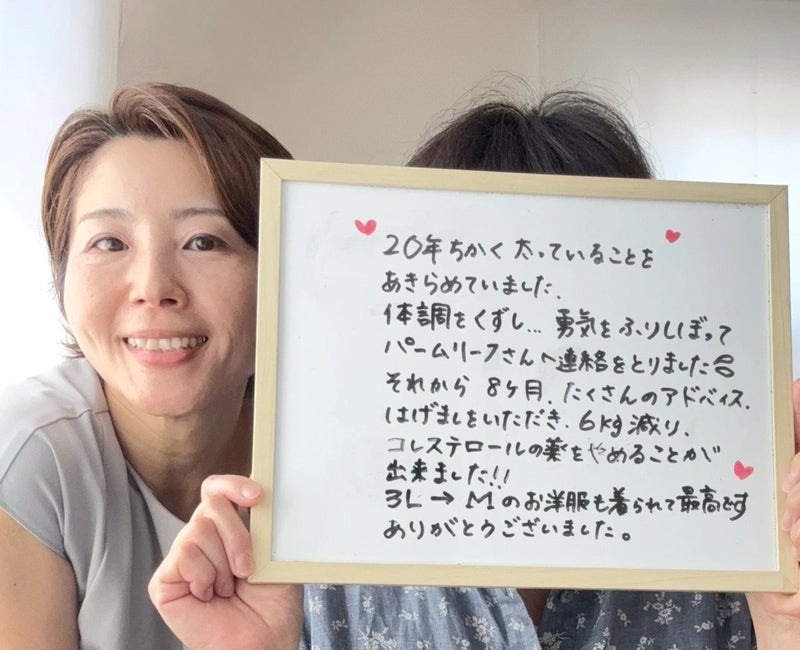 20年ちかく太っていることを
あきらめていました、
体調をくずし… 勇気をふりしぼって
パームリーフさんへ連絡をとりました
それから 8ヶ月、たくさんのアドバイス、
はげましをいただき、6kg減り、
コレステロールの薬をやめることが
出来ました!!
3L→Mのお洋服も着られて最高です
ありがとうございました。